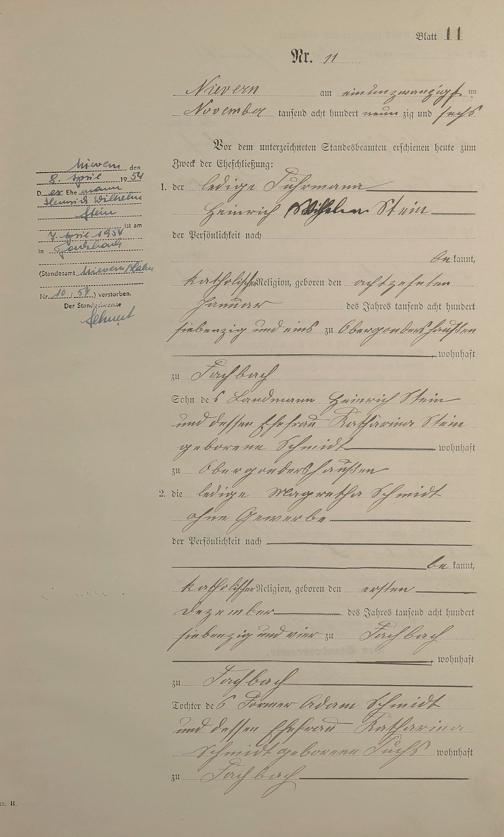 Blatt 11
Nr. 11
Nievern am einundzwanzigsten
November tausend acht hundert neun zig und sechs
Vor dem unterzeichneten Standesbeamten erschienen heute zum
Zweck der Eheschließung:
1. der ledige Fuhrmann
Heinrich Wilhelm Stein
der Persönlichkeit nach
be kannt,
katholischer Religion, geboren den achtzehnten
Januar des Jahres tausend acht hundert
siebenzig und eins zu Obergondershausen
, wohnhaft
zu Fachbach
Sohn des Landmann Heinrich Stein
und dessen Ehefrau Katharina Stein
geborene Schmidt wohnhaft
zu Obergondershausen
2. die ledige Magretha Schmidt
ohne Gewerbe
der Persönlichkeit nach
be kannt,
katholischer Religion, geboren den ersten
Dezember des Jahres tausend acht hundert
siebenzig und vier zu Fachbach
, wohnhaft
zu Fachbach
Tochter des Former Adam Schmidt
und dessen Ehefrau Katharina
Schmidt geborene Fuchs wohnhaft
zu Fachbach
Nievern, den
8. April 1954
D er Ehe mann
Heinrich Wilhelm
Stein
ist am
7. April 1954
in Fachbach
(Standesamt Nievern/Lahn
Nr. 10, 54) verstorben.
Der Standesbeamte